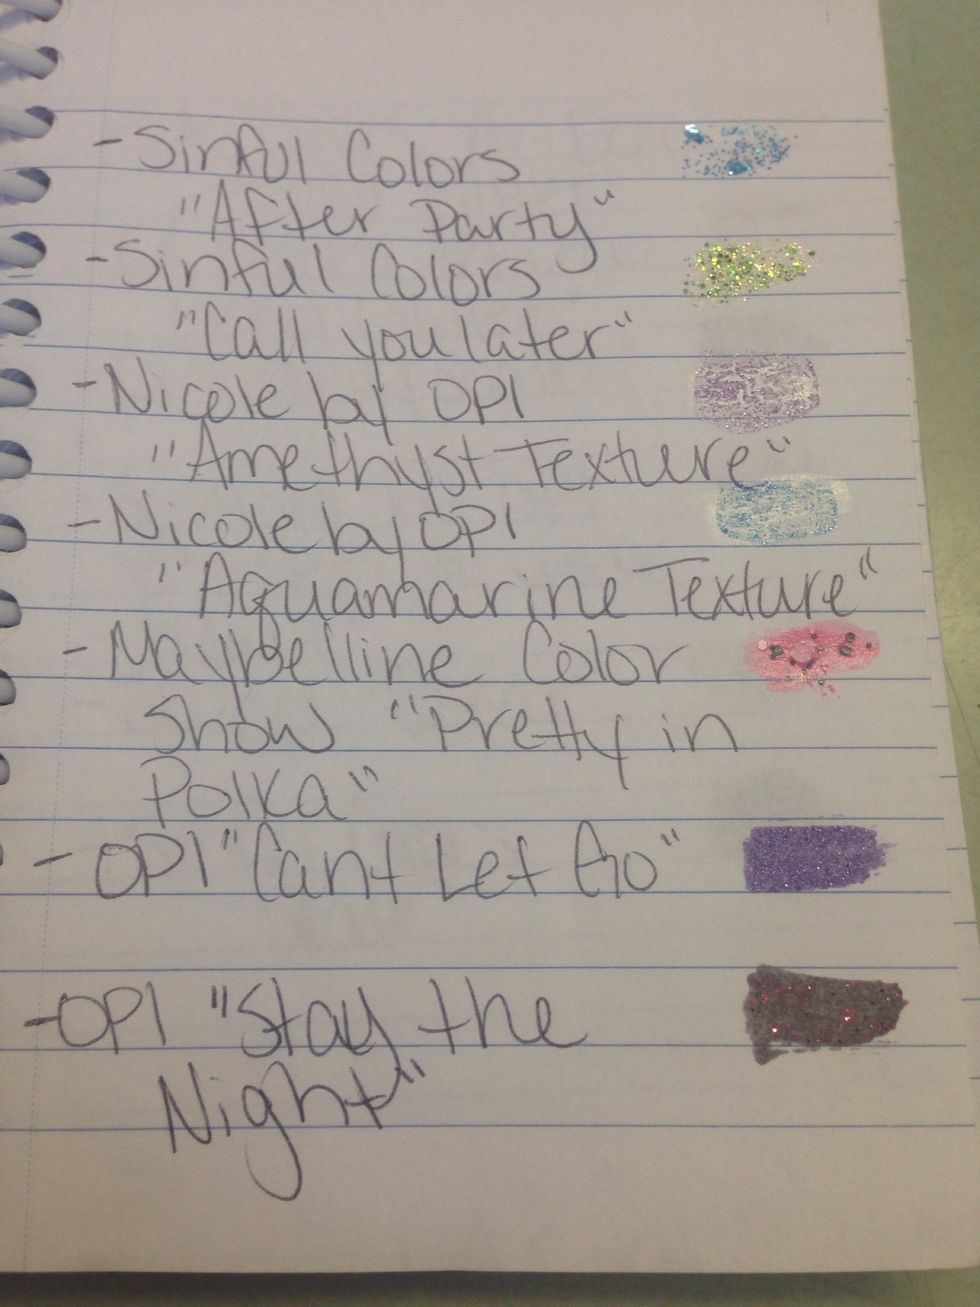 - Sinful Colors
"After Party"
- Sinful Colors
"Call you later"
- Nicole by OPI
"Amethyst Texture"
- Nicole by OPI
"Aquamarine Texture"
- Maybelline Color
Show "Pretty in
Polka"
- OPI "Cant Let Go"
- OPI "Stay the
Night"